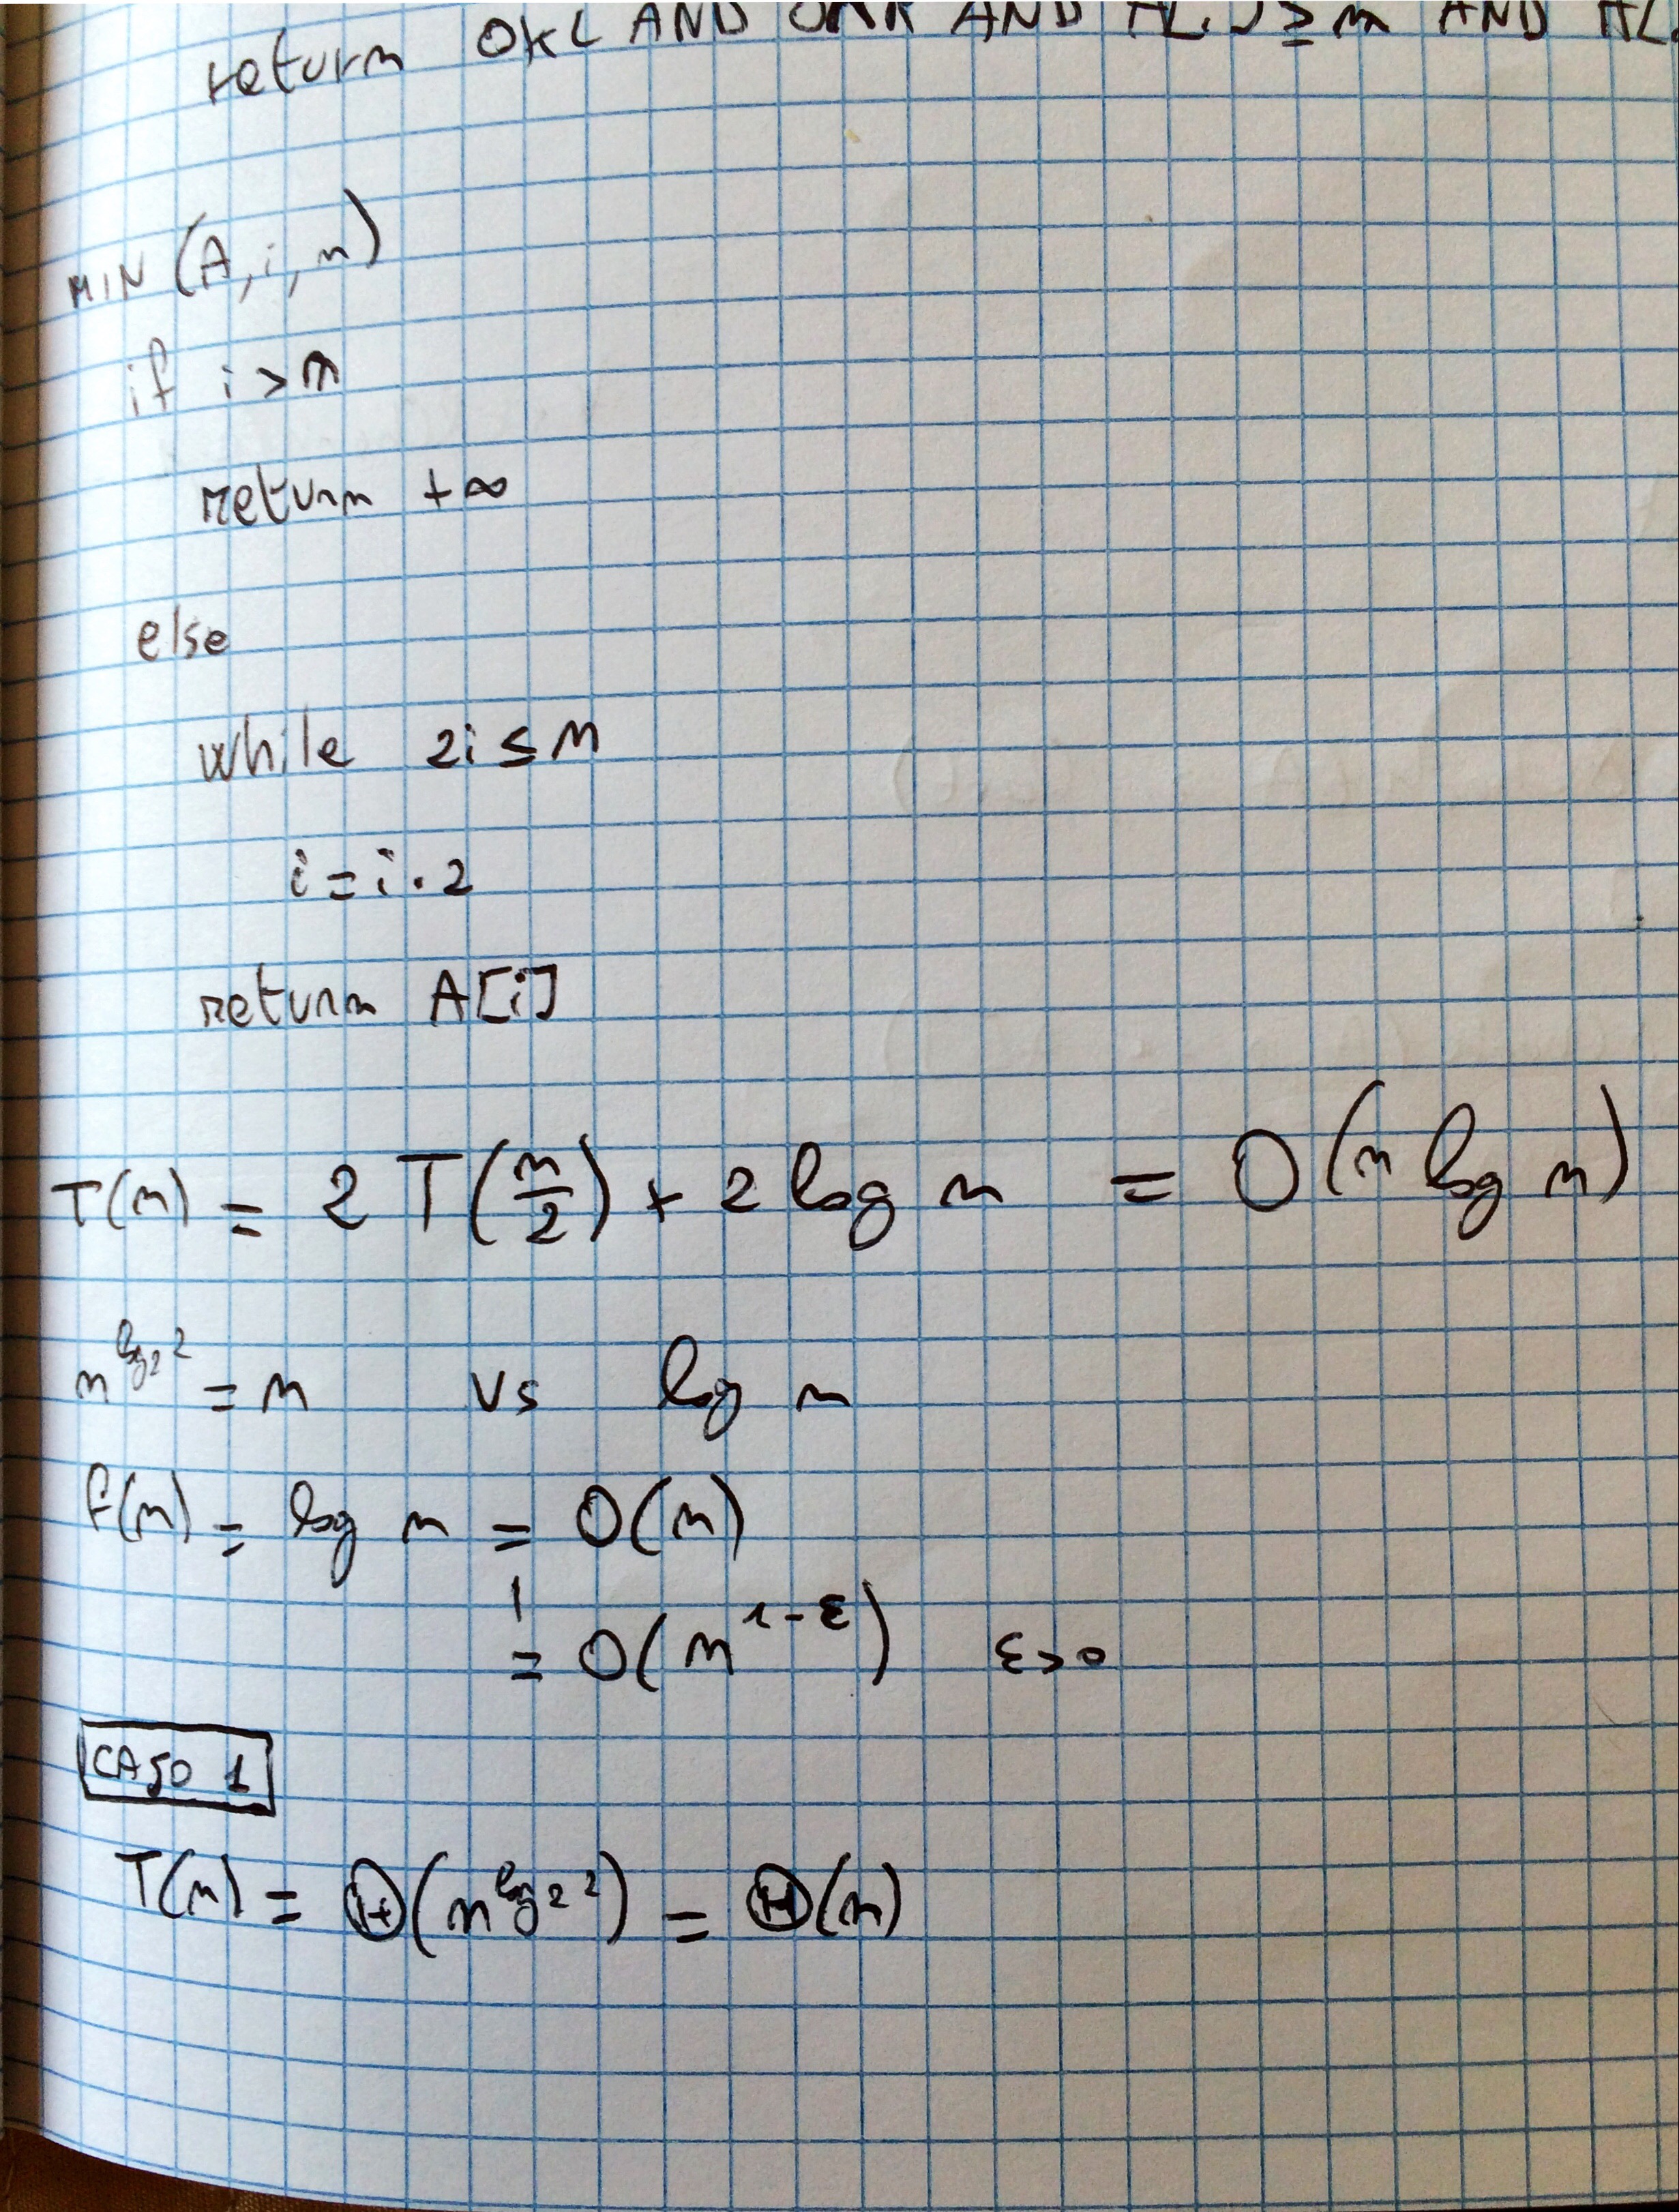 return OKL AND OKR AND A[i] ≥ m AND
MIN (A, i, n)
if i > n
return +∞
else
while 2i ≤ n
i = i · 2
return A[i]
T(n) = 2 T(n/2) + 2 log n = O(n log n)
n^log₂2 = n vs log n
f(n) = log n = O(n)
! = O(n^1-ε) ε>0
CASO 1
T(n) = Θ(n^log₂2) = Θ(n)